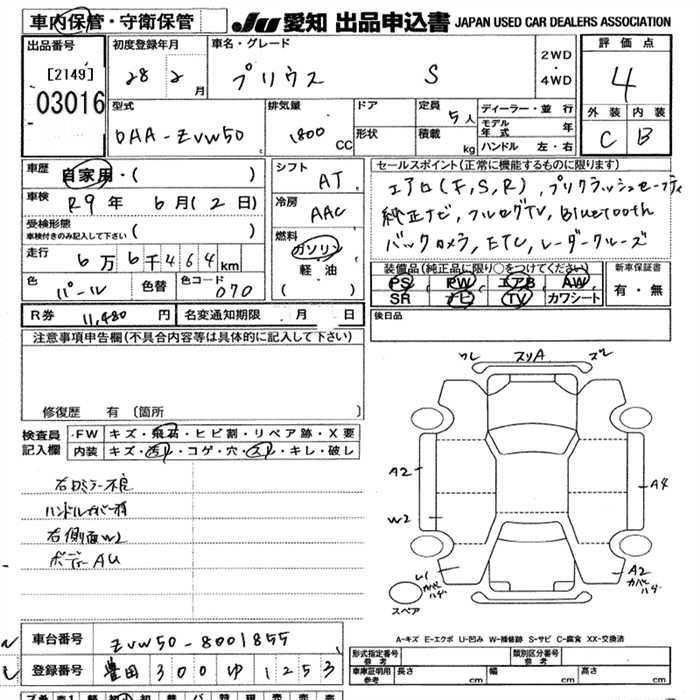 車内保管・守衛保管 JU 愛知 出品申込書 JAPAN USED CAR DEALERS ASSOCIATION
出品番号 [2149] 03016
初度登録年月 28 2月
車名・グレード プリウス S
2WD・4WD
評価点 4
外装 C 内装 B
型式 DAA-ZVW50
排気量 1800 CC
ドア 形状
定員 5人 積載 kg
ディーラー・並行
モデル年式 年
ハンドル 左・右
車歴 自家用・( )
車検 R9年 6月(2日)
受検形態 車検付きのみ記入して下さい ( )
走行 6万6千464km
色 パール 色替 色コード 070
シフト AT
冷房 AAC
燃料 ガソリン 軽油 ( )
セールスポイント(正常に機能するものに限ります)
エアロ(F,S,R), プリクラッシュセーフティ
純正ナビ, フルセグTV, Bluetooth
バックカメラ, ETC, レーダークルーズ
装備品(純正品に限り○をつけてください)
PS PW エアB AW
SR ナビ TV カワシート
新車保証書 有・無
R券 11,480円 名変通知期限 月 日
後日品
注意事項申告欄(不具合内容等は具体的に記入して下さい)
修復歴 有〔箇所 〕
検査員記入欄
FW キズ・飛石・ヒビ割・リペア跡・X要
内装 キズ・汚れ・コゲ・穴・スレ・キレ・破し
右ミラー不良
ハンドルカバー有
右側面W2
ボディーAU
ワレ スリA ズレ
A2
W2
A4
A2
カバーハゲ
スペア
A-キズ E-エクボ U-凹み W-補修跡 S-サビ C-腐食 XX-交換済
車台番号 ZVW50-8001855
登録番号 豊田 300 ゆ 1253
形式指定番号 参考 類別区分番号 参考
車庫証明用参考 長さ cm 幅 cm 高さ cm